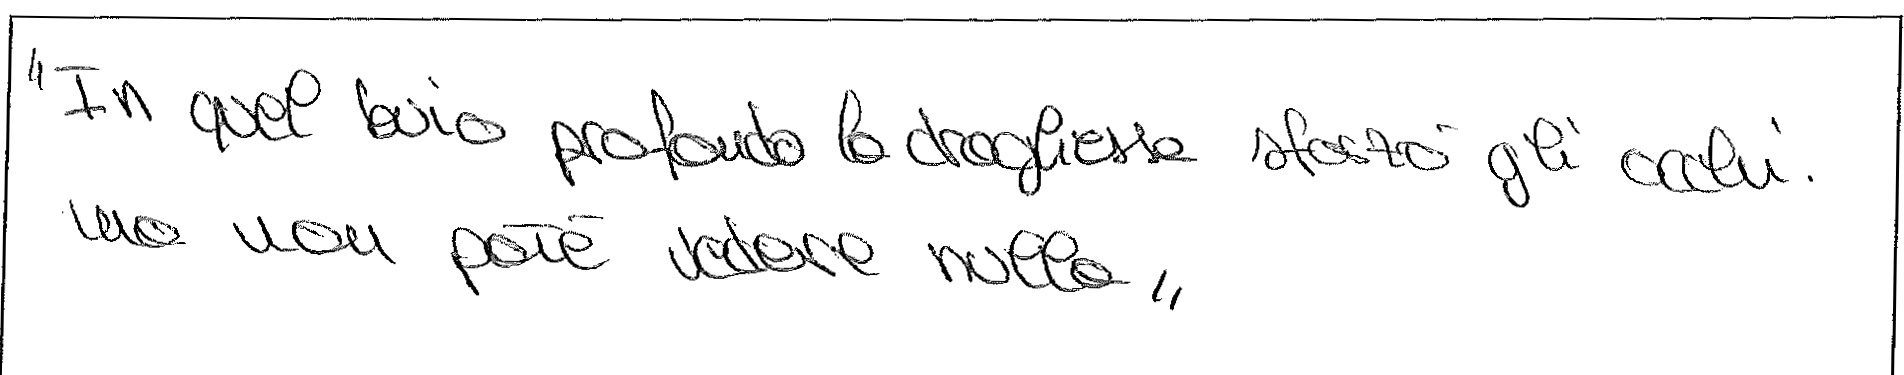 "In quel buio profondo la droghiessa sforzò gli occhi.
ma non potè vedere nulla"